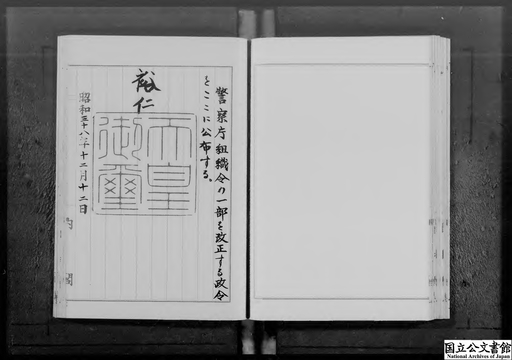 警察庁組織令の一部を改正する政令
をここに公布する。
裕仁
天皇
御璽
昭和三十八年十二月十二日
内閣
国立公文書館
National Archives of Japan